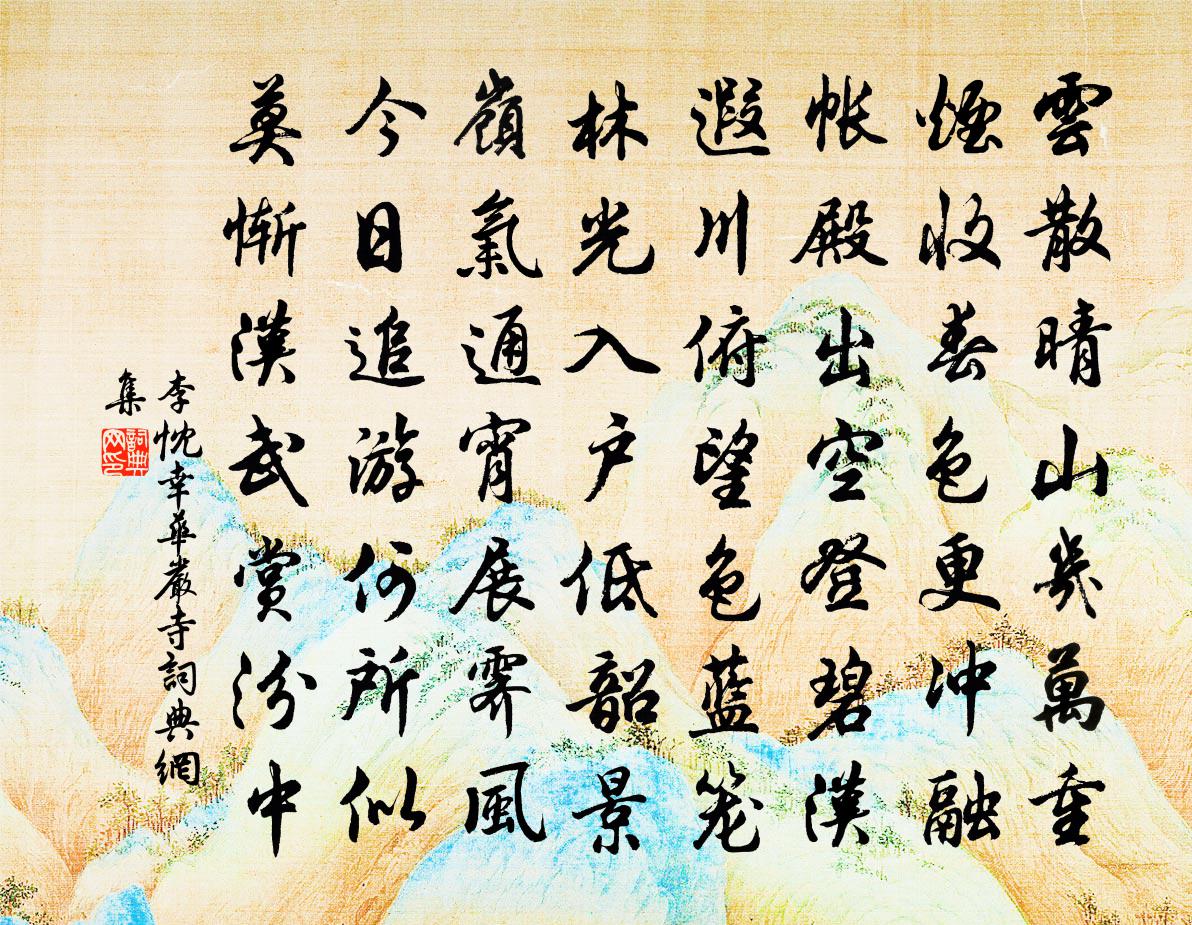 雲散晴山幾萬重
煙收春色更沖融
帳殿出空登碧漢
遐川俯望色藍笼
林光入戶低韶景
嶺氣通宵展霽風
今日追游何所似
莫慚漢武賞汾中
李忱幸華嚴寺詞典網
集
詞典網印